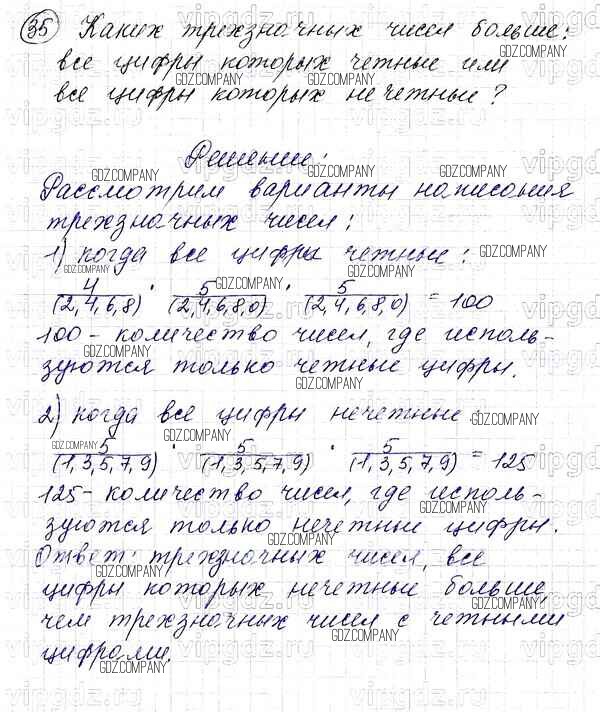 35 Каких трехзначных чисел больше:
все цифры которых четные или
все цифры которых нечетные?
Решение:
Рассмотрим варианты написания
трехзначных чисел:
1) когда все цифры четные:
4 · 5 · 5
(2,4,6,8) (2,4,6,8,0) (2,4,6,8,0) = 100
100 - количество чисел, где исполь-
зуются только четные цифры.
2) когда все цифры нечетные:
5 · 5 · 5
(1,3,5,7,9) (1,3,5,7,9) (1,3,5,7,9) = 125
125 - количество чисел, где исполь-
зуются только нечетные цифры.
Ответ: трехзначных чисел, все
цифры которых нечетные больше,
чем трехзначных чисел с четными
цифрами.
GDZ.COMPANY
vipgdz.ru